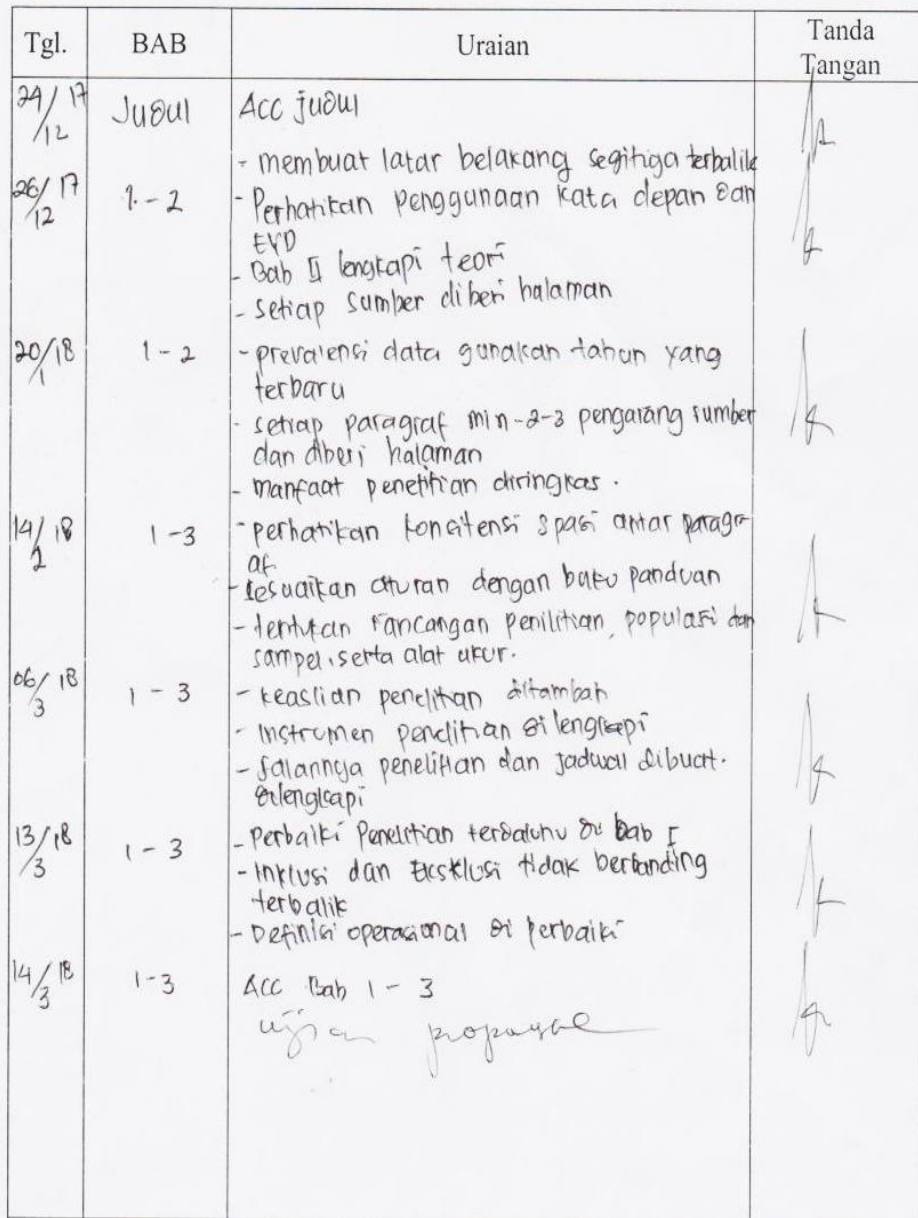 Tgl. BAB Uraian Tanda Tangan
24/12 17 Judul Acc judul
- membuat latar belakang segitiga terbalik
26/12 17 1 - 2 - Perhatikan penggunaan kata depan dan
EYD
- Bab II lengkapi teori
- setiap sumber diberi halaman
20/1 18 1 - 2 - prevalensi data gunakan tahun yang
terbaru
- setiap paragraf min-2-3 pengarang sumber
dan diberi halaman
- manfaat penelitian diringkas.
14/2 18 1 - 3 - perhatikan konsitensi spasi antar paragr-
af
- sesuaikan aturan dengan buku panduan
- tentukan rancangan penilitian, populasi dan
sampel, serta alat ukur.
06/3 18 1 - 3 - keaslian penelitian ditambah
- Instrumen penelitian dilengkapi
- Jalannya penelitian dan jadwal dibuat.
dilengkapi
13/3 18 1 - 3 - Perbaiki Penelitian terdahulu di bab I
- Inklusi dan Eksklusi tidak berbanding
terbalik
- Definisi operasional di perbaiki
14/3 18 1 - 3 ACC Bab 1 - 3
ujian proposal